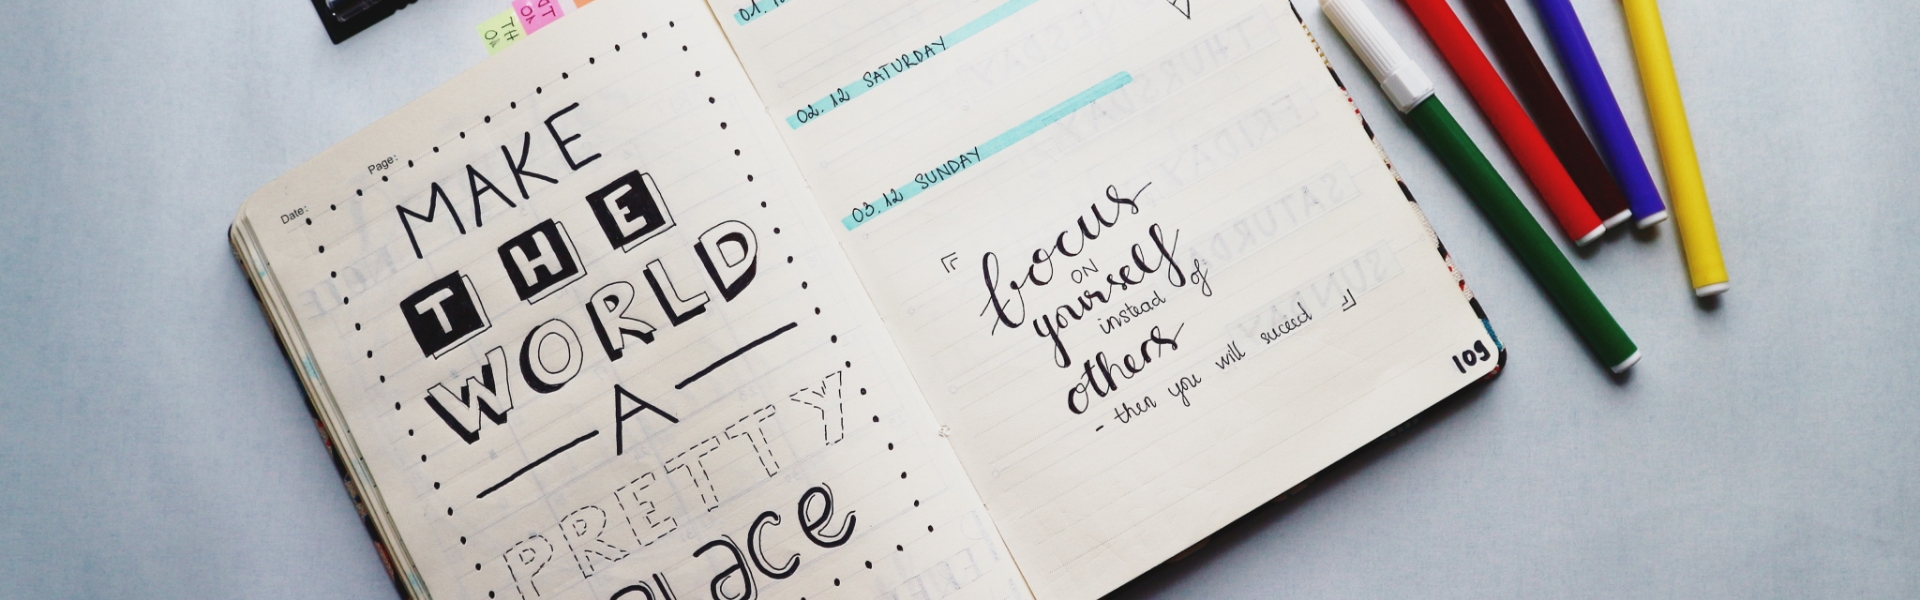 Page:
Date:
MAKE
THE
WORLD
A
PRETTY
place
02. 12 SATURDAY
03. 12 SUNDAY
focus
ON
yourself
instead of
others
- then you will suceed
109